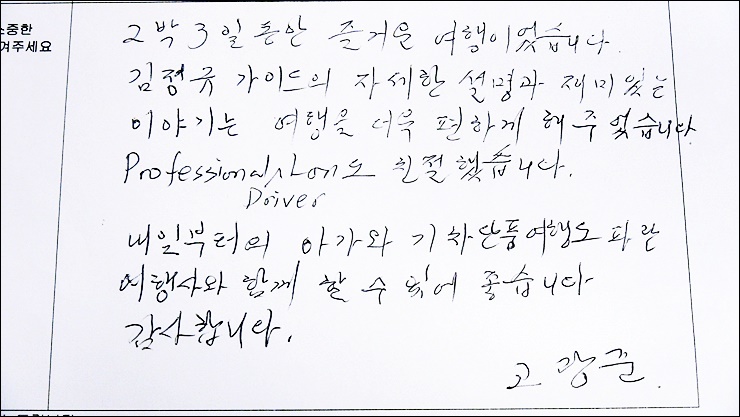 소중한
겨주세요
2박 3일 동안 즐거운 여행이었습니다.
김정규 가이드의 자세한 설명과 재미있는
이야기는 여행을 더욱 편하게 해주었습니다
Professional 도 친절했습니다.
Driver
내일부터의 아가와 기차단풍여행도 파란
여행사와 함께 할 수 있어 좋습니다
감사합니다.
고 광